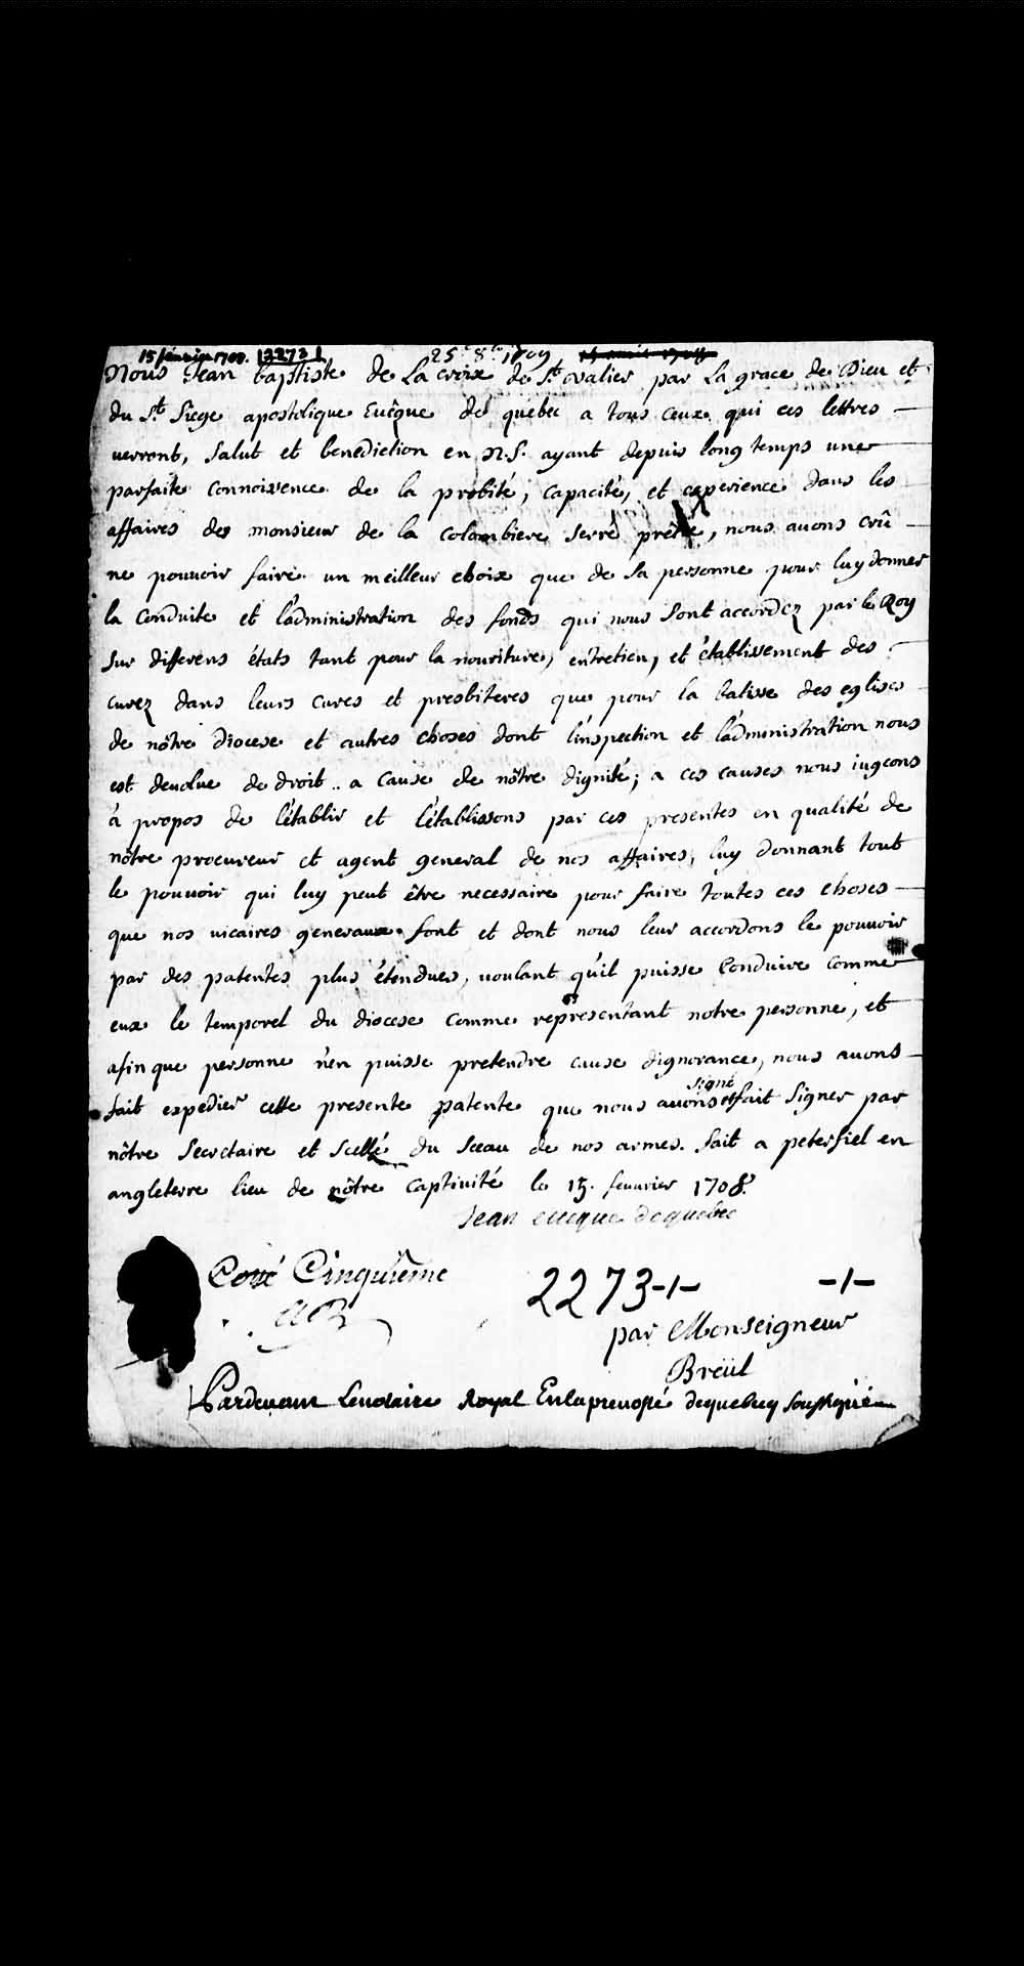 15 février 1708. 2273 25e 8bre 1709
Nous Jean baptiste de La croix de St. ovalier par La grace de Dieu et
du St. Siege apostolique Evêque de quebec a tous ceux qui ces lettres
verront, Salut et benediction en N.S. ayant depuis long temps une
parfaite connoissence de la probité, capacité, et experience dans les
affaires de monsieur de la colombiere Serré prêtre, nous avons crû
ne pouvoir faire un meilleur choix que de Sa personne pour luy donner
la conduite et l'administration des fonds qui nous Sont accordez par le Roy
Sur differens états tant pour la nouriture, entretien, et établissement des
curez dans leurs cures et presbiteres que pour la batisse des eglises
de nôtre diocese et autres choses dont l'inspection et l'administration nous
est devolue de droit a cause de nôtre dignité; a ces causes nous iugeons
à propos de l'établir et l'établissons par ces presentes en qualité de
nôtre procureur et agent general de nos affaires, luy donnant tout
le pouvoir qui luy peut être necessaire pour faire toutes ces choses
que nos vicaires generaux font et dont nous leur accordons le pouvoir
par des patentes plus étendues, voulant qu'il puisse conduire comme
eux le temporel du diocese comme representant notre personne, et
afin que personne n'en puisse pretendre cause dignorance, nous avons
signé
fait expedier cette presente patente que nous avons et fait Signer par
nôtre Secretaire et Scellé du Sceau de nos armes. fait a petersfiel en
angleterre lieu de nôtre captivité le 15. fevrier 1708.
Jean eveque de quebec
Cotté Cinquième
2273-/- -/-
par Monseigneur
Breül
Pardevant Lenotaire Royal Enlaprevosté dequebecq soussigné